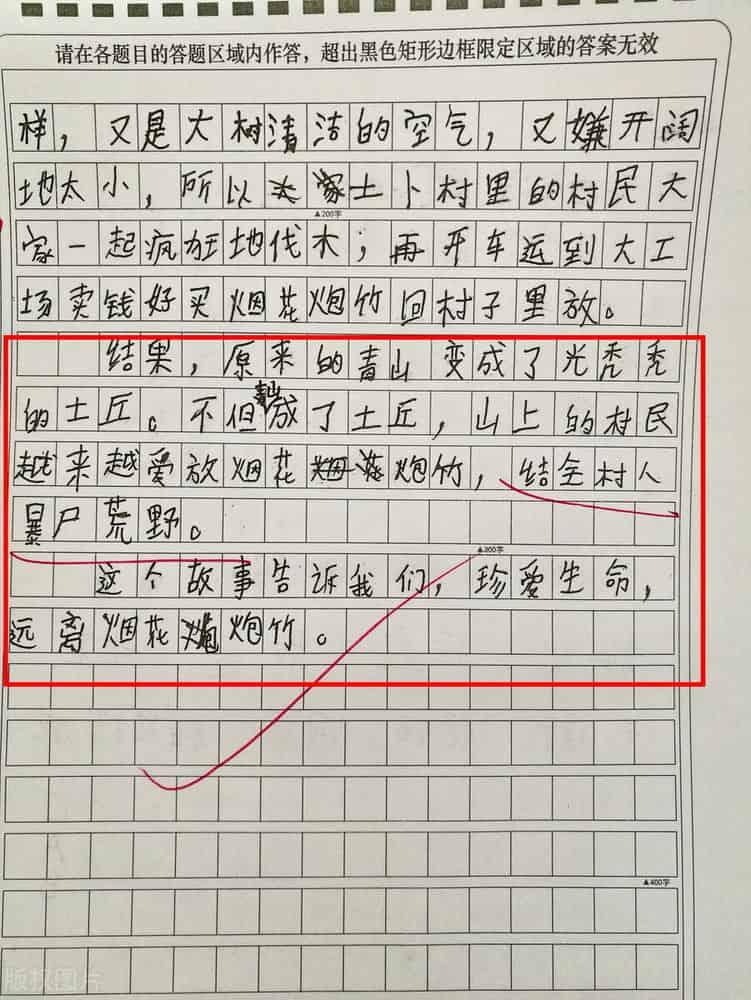 请在各题目的答题区域内作答，超出黑色矩形边框限定区域的答案无效
样，又是大树清洁的空气，又嫌开阔
地太小，所以土卜村里的村民大
▲200字
家一起疯狂地伐木；再开车运到大工
场卖钱好买烟花炮竹回村子里放。
结果，原来的青山变成了光秃秃
的土丘。不但青山成了土丘，山上的村民
越来越爱放烟花炮竹，结全村人
暴尸荒野。
▲300字
这个故事告诉我们，珍爱生命，
远离烟花炮竹。
▲400字
版权图片